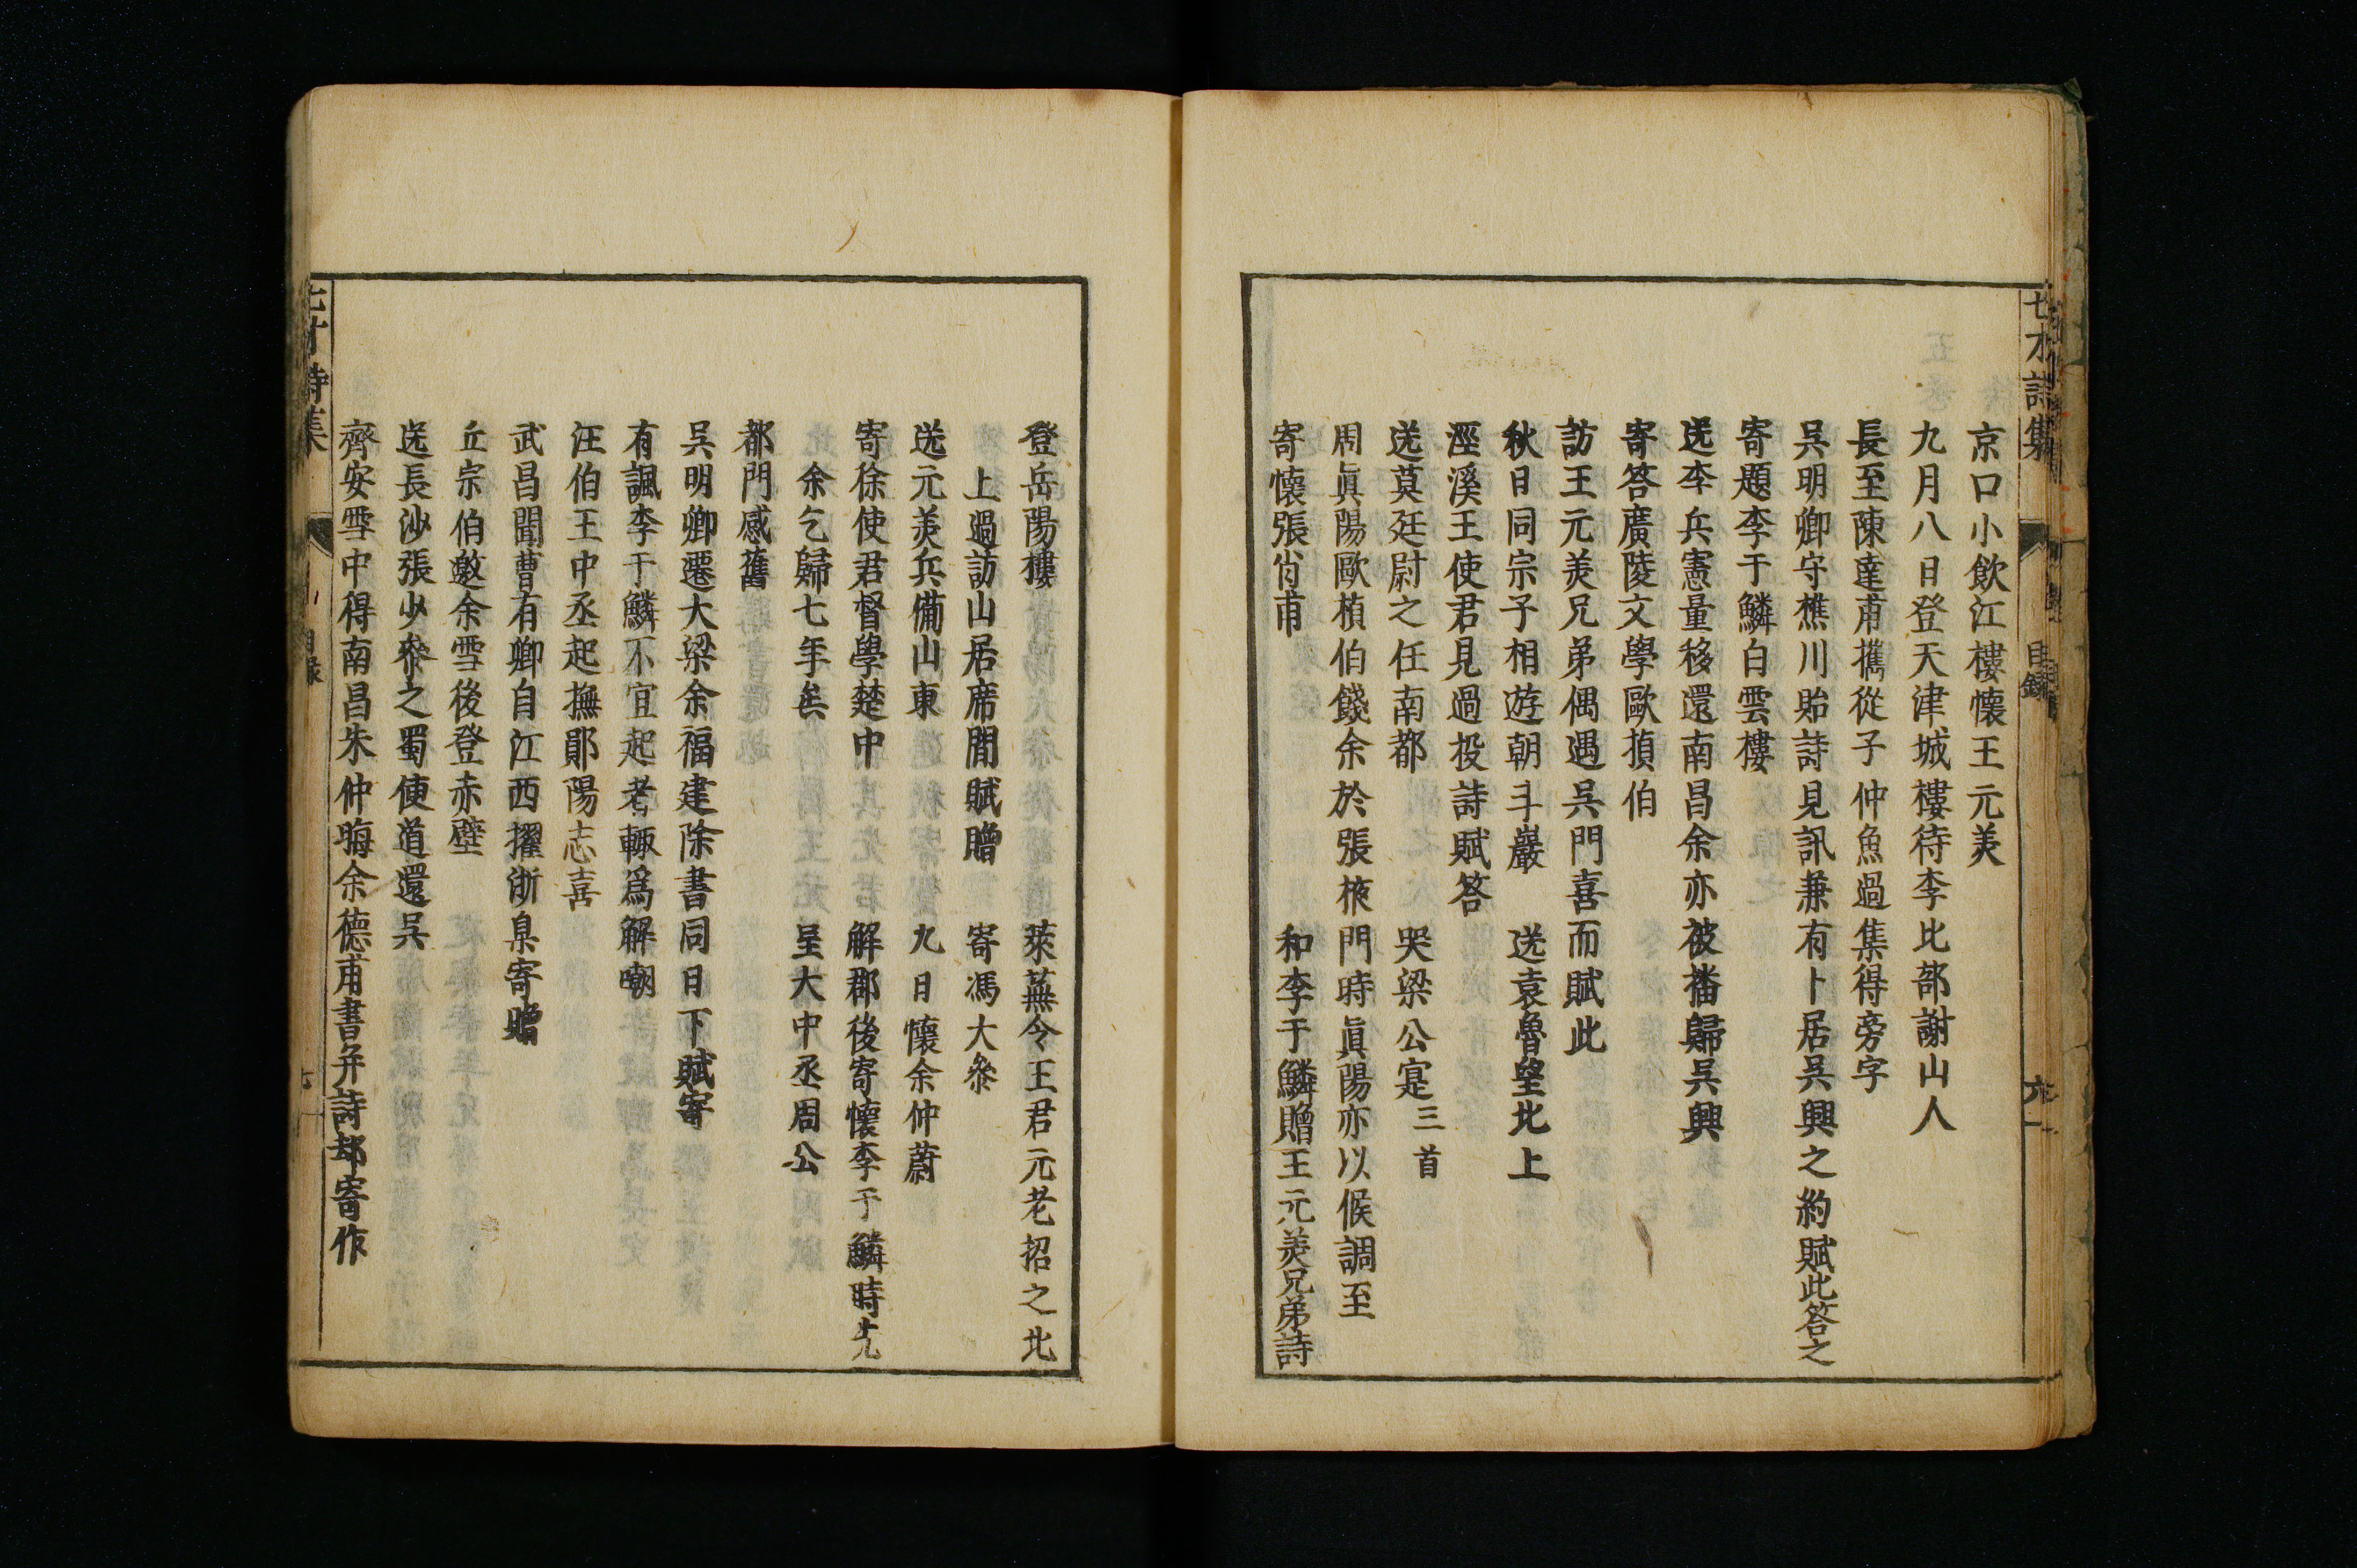 京口小飲江樓懷王元美
九月八日登天津城樓待李比部謝山人
長至陳達甫攜從子仲魚過集得旁字
吳明卿守樵川貽詩見訊兼有卜居吳興之約賦此答之
寄題李于鱗白雲樓
送李兵憲量移還南昌余亦被播歸吳興
寄答廣陵文學歐楨伯
訪王元美兄弟偶遇吳門喜而賦此
秋日同宗子相遊朝斗巖 送袁魯望北上
溼溪王使君見過投詩賦答
送莫廷尉之任南都 哭梁公寔三首
周眞陽歐楨伯餞余於張掖門時眞陽亦以候調至
寄懷張肖甫 和李于鱗贈王元美兄弟詩
七才詩集 目錄 六
登岳陽樓 萊蕪令王君元老招之北
上過訪山居席間賦贈 寄馮大參
送元美兵備山東 九日懷余仲蔚
寄徐使君督學楚中 解郡後寄懷李于鱗時先
余乞歸七年矣 呈大中丞周公
都門感舊
吳明卿遷大梁余福建除書同日下賦寄
有諷李于鱗不宜起考輒爲解嘲
汪伯王中丞起撫鄖陽志喜
武昌聞曹有卿自江西擢浙臬寄贈
丘宗伯邀余雪後登赤壁
送長沙張少參之蜀便道還吳
齊安雪中得南昌朱仲晦余德甫書并詩却寄作
七才詩集 目錄 七